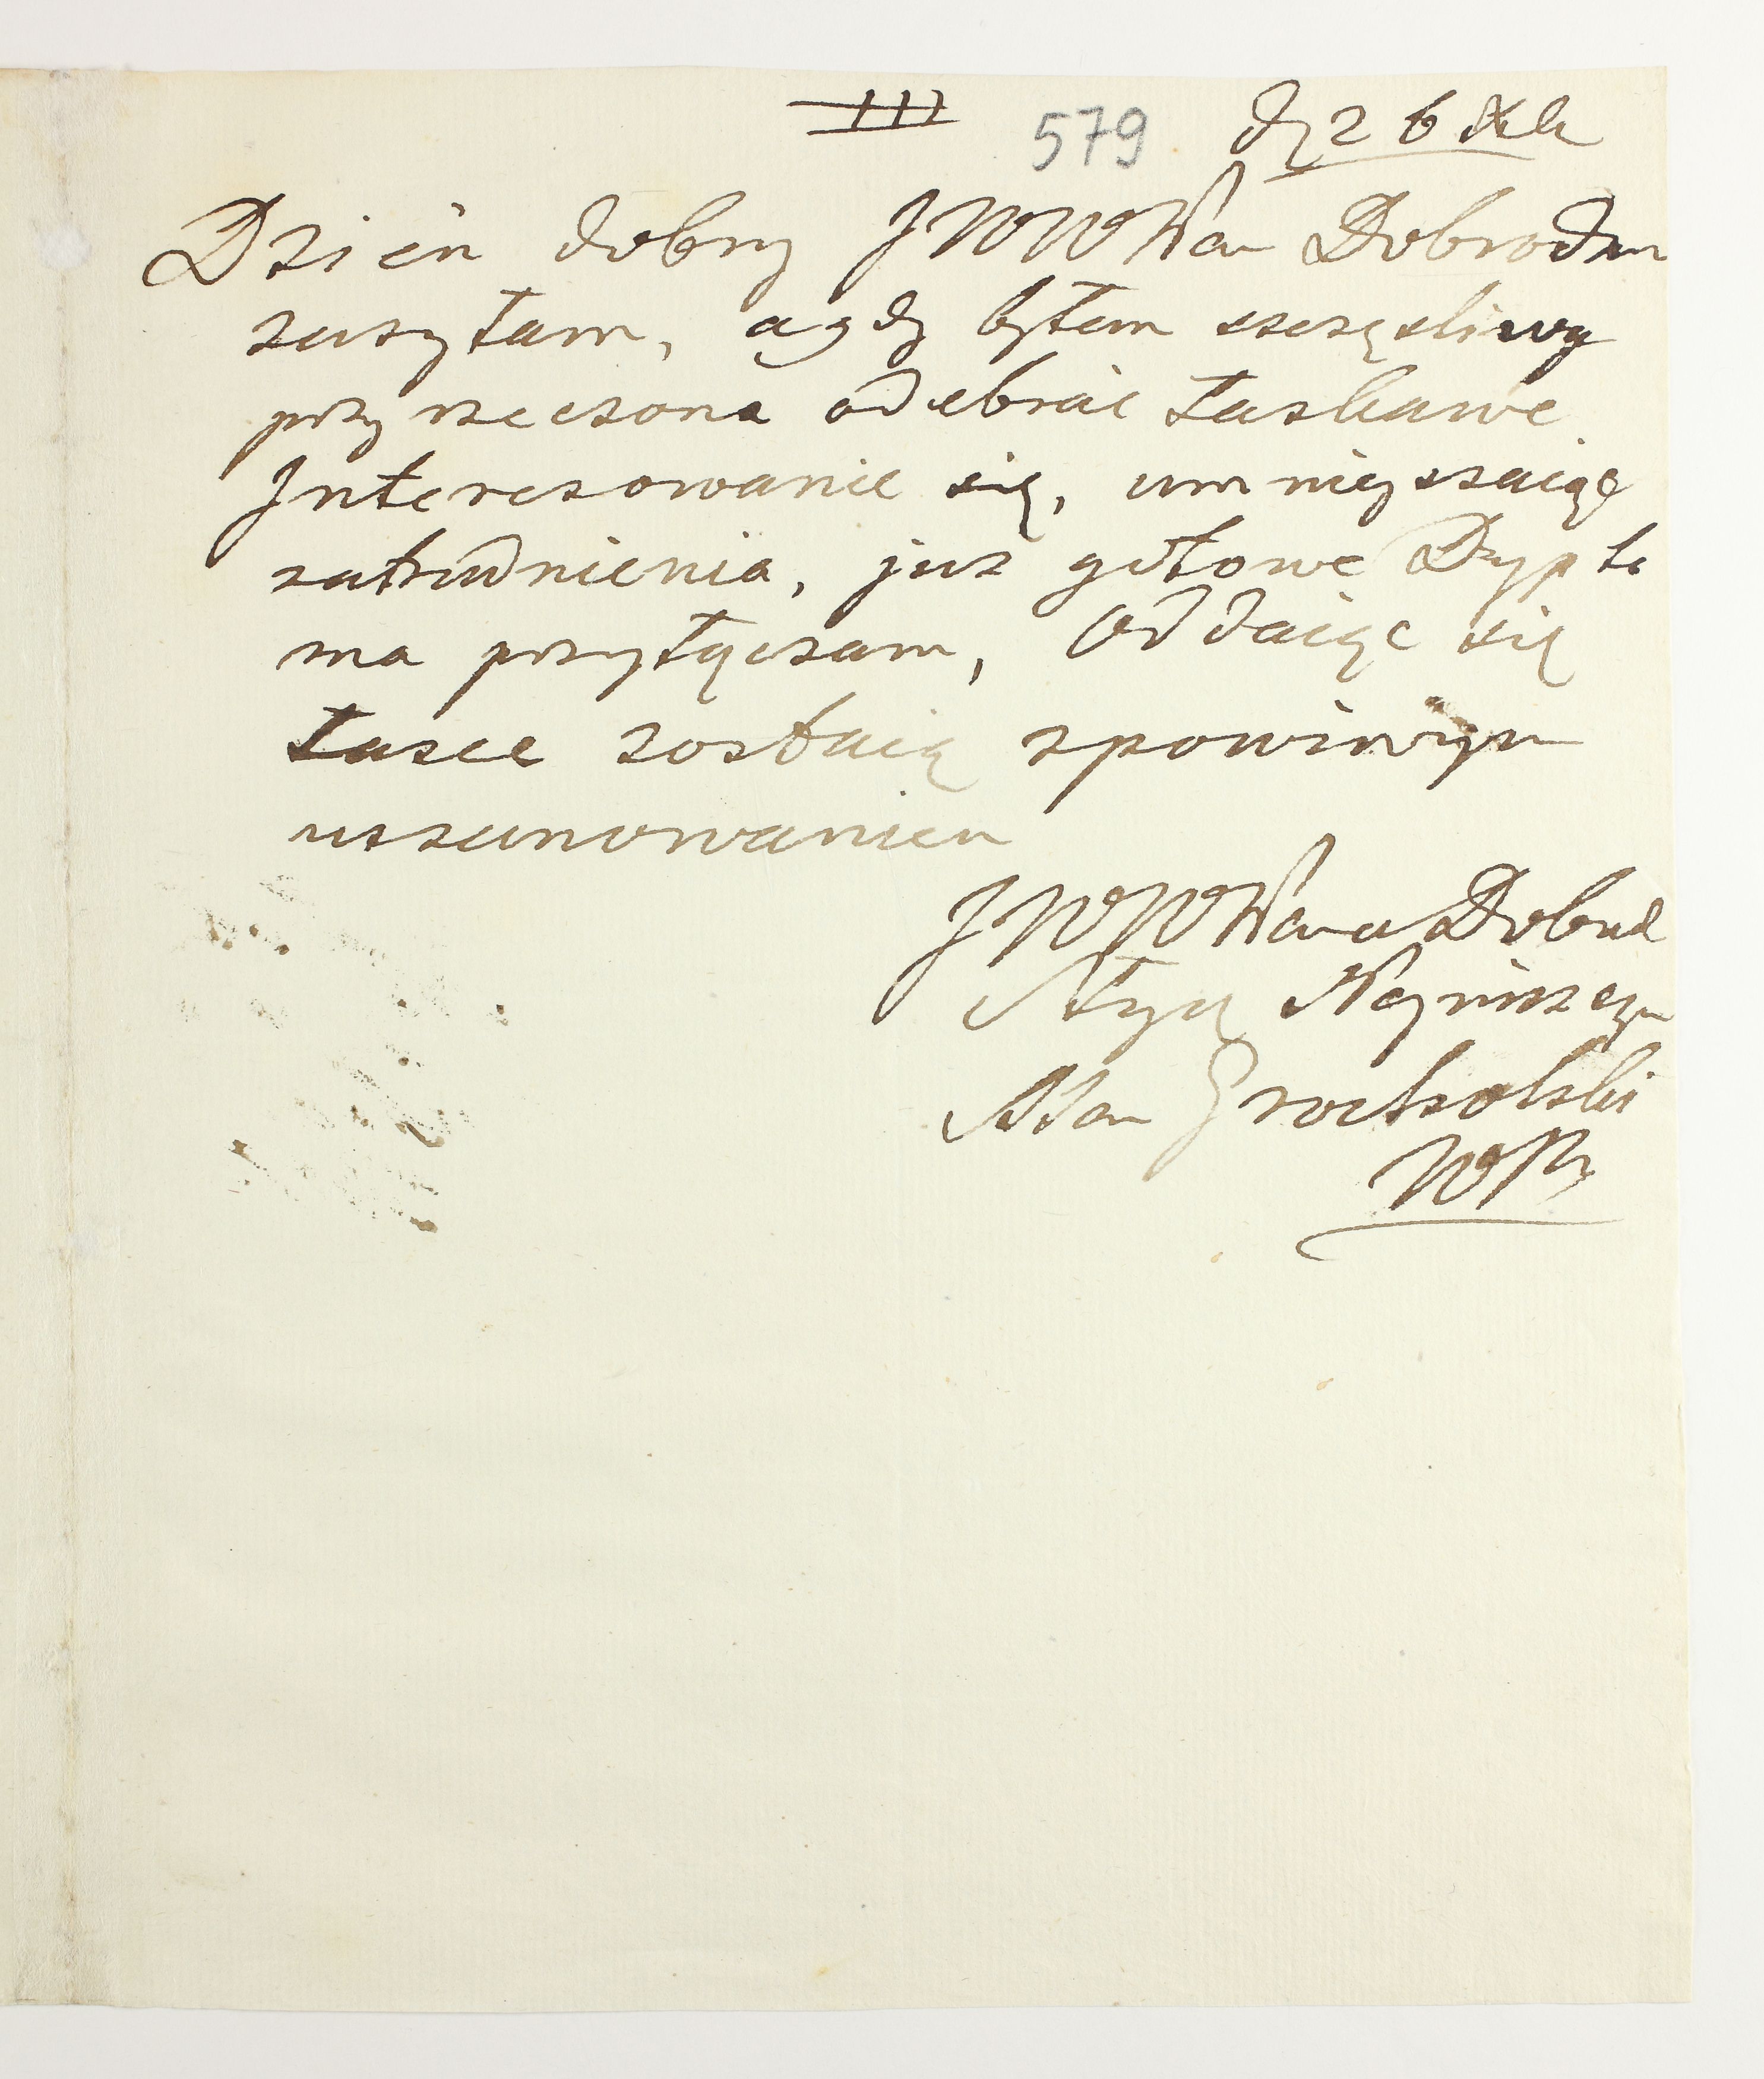 579 d 26 Xb
Dzień dobry JWW Pan Dobrodzn
zasyłam, a gdy byłem szczęsliwy
przyrzeczone odebrać łaskawe
Jnteresowanie się, umnieyszaiąc
zatrudnienia, już gotowe Dypło
ma przyłączam, Oddaiąc się
łasce zostaię zpowinym
uszanowaniem
JWW Pana Dobrod
Sługą Nayniższym
Adam Grocholski